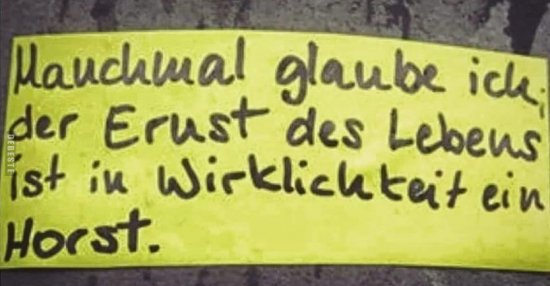 Manchmal glaube ich,
der Ernst des Lebens
ist in Wirklichkeit ein
Horst.
DEBESTE